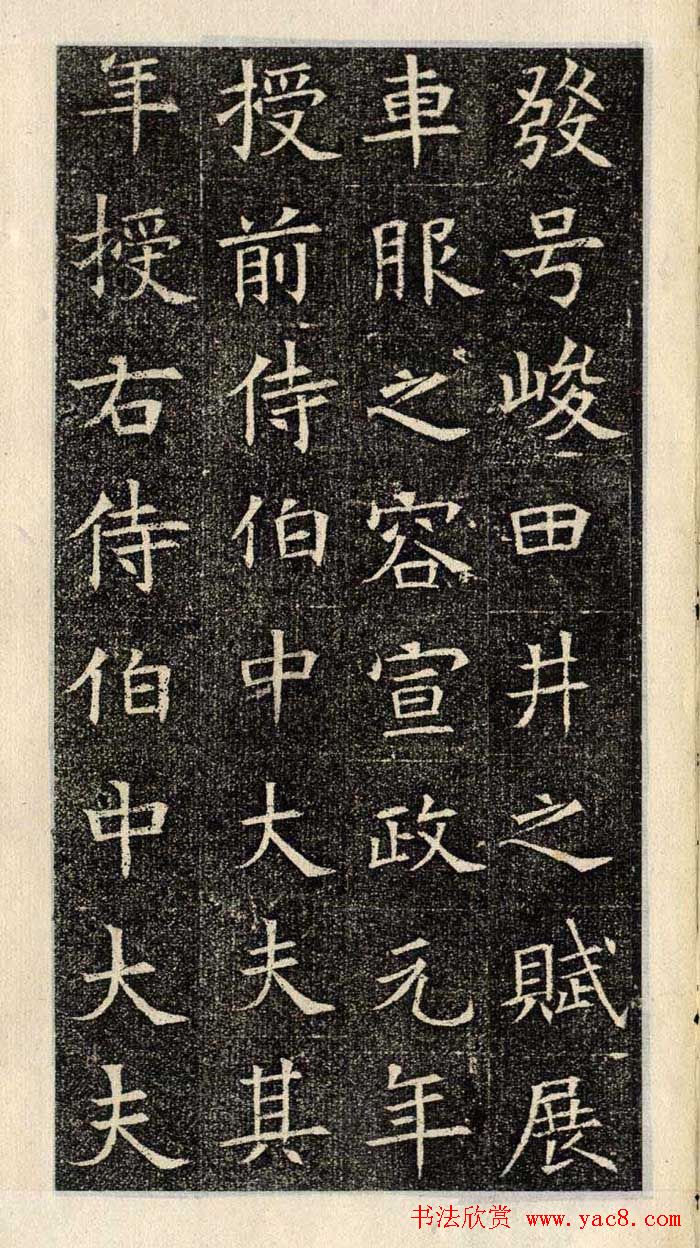 發号峻田井之賦展
車服之容宣政元年
授前侍伯中大夫其
年授右侍伯中大夫
书法欣赏 www.yac8.com